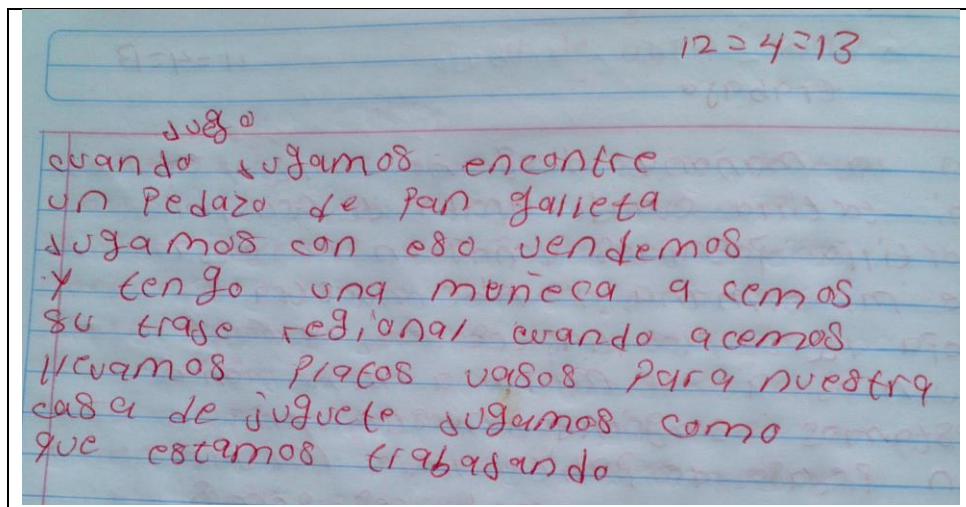 12=4=13
Juego
cuando jugamos encontre
un Pedazo de Pan galleta
Jugamos con eso vendemos
y tengo una moñeca a cemos
su trase regional cuando acemos
llevamos Platos vasos Para nuestra
casa de juguete Jugamos como
que estamos trabasando